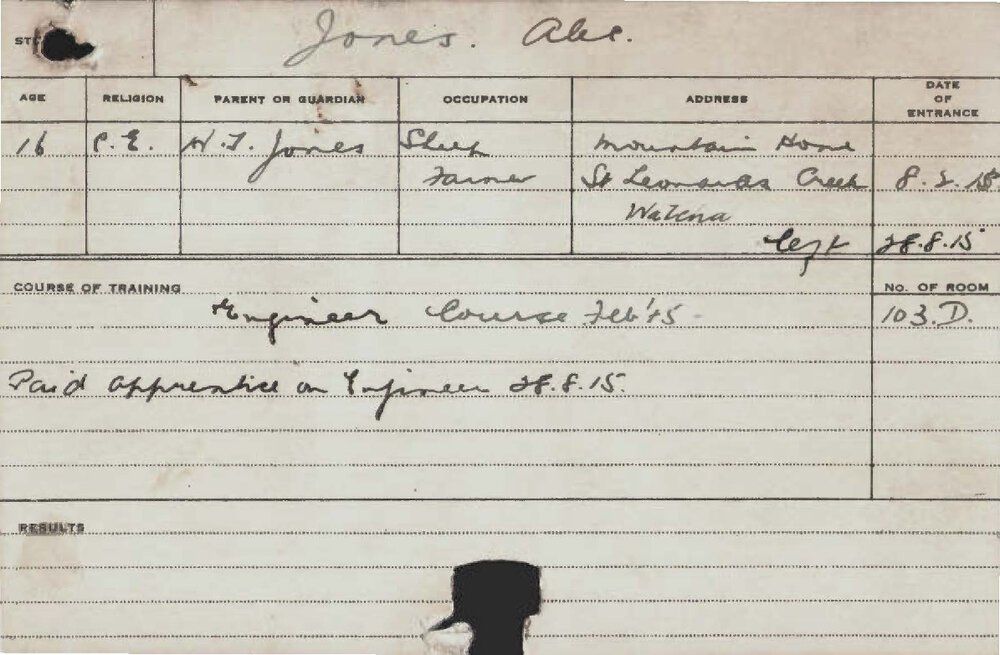 Jones. Alec.
AGE RELIGION PARENT OR GUARDIAN OCCUPATION ADDRESS DATE OF ENTRANCE
16 C.E. W.J. Jones Sheep Farmer Mountain Home
St Leonards Creek 8.2.15
Left 28.8.15
COURSE OF TRAINING No. OF ROOM
Engineer Course Feb '15 103.D.
Paid apprentice on Engineer 28.8.15.
RESULTS